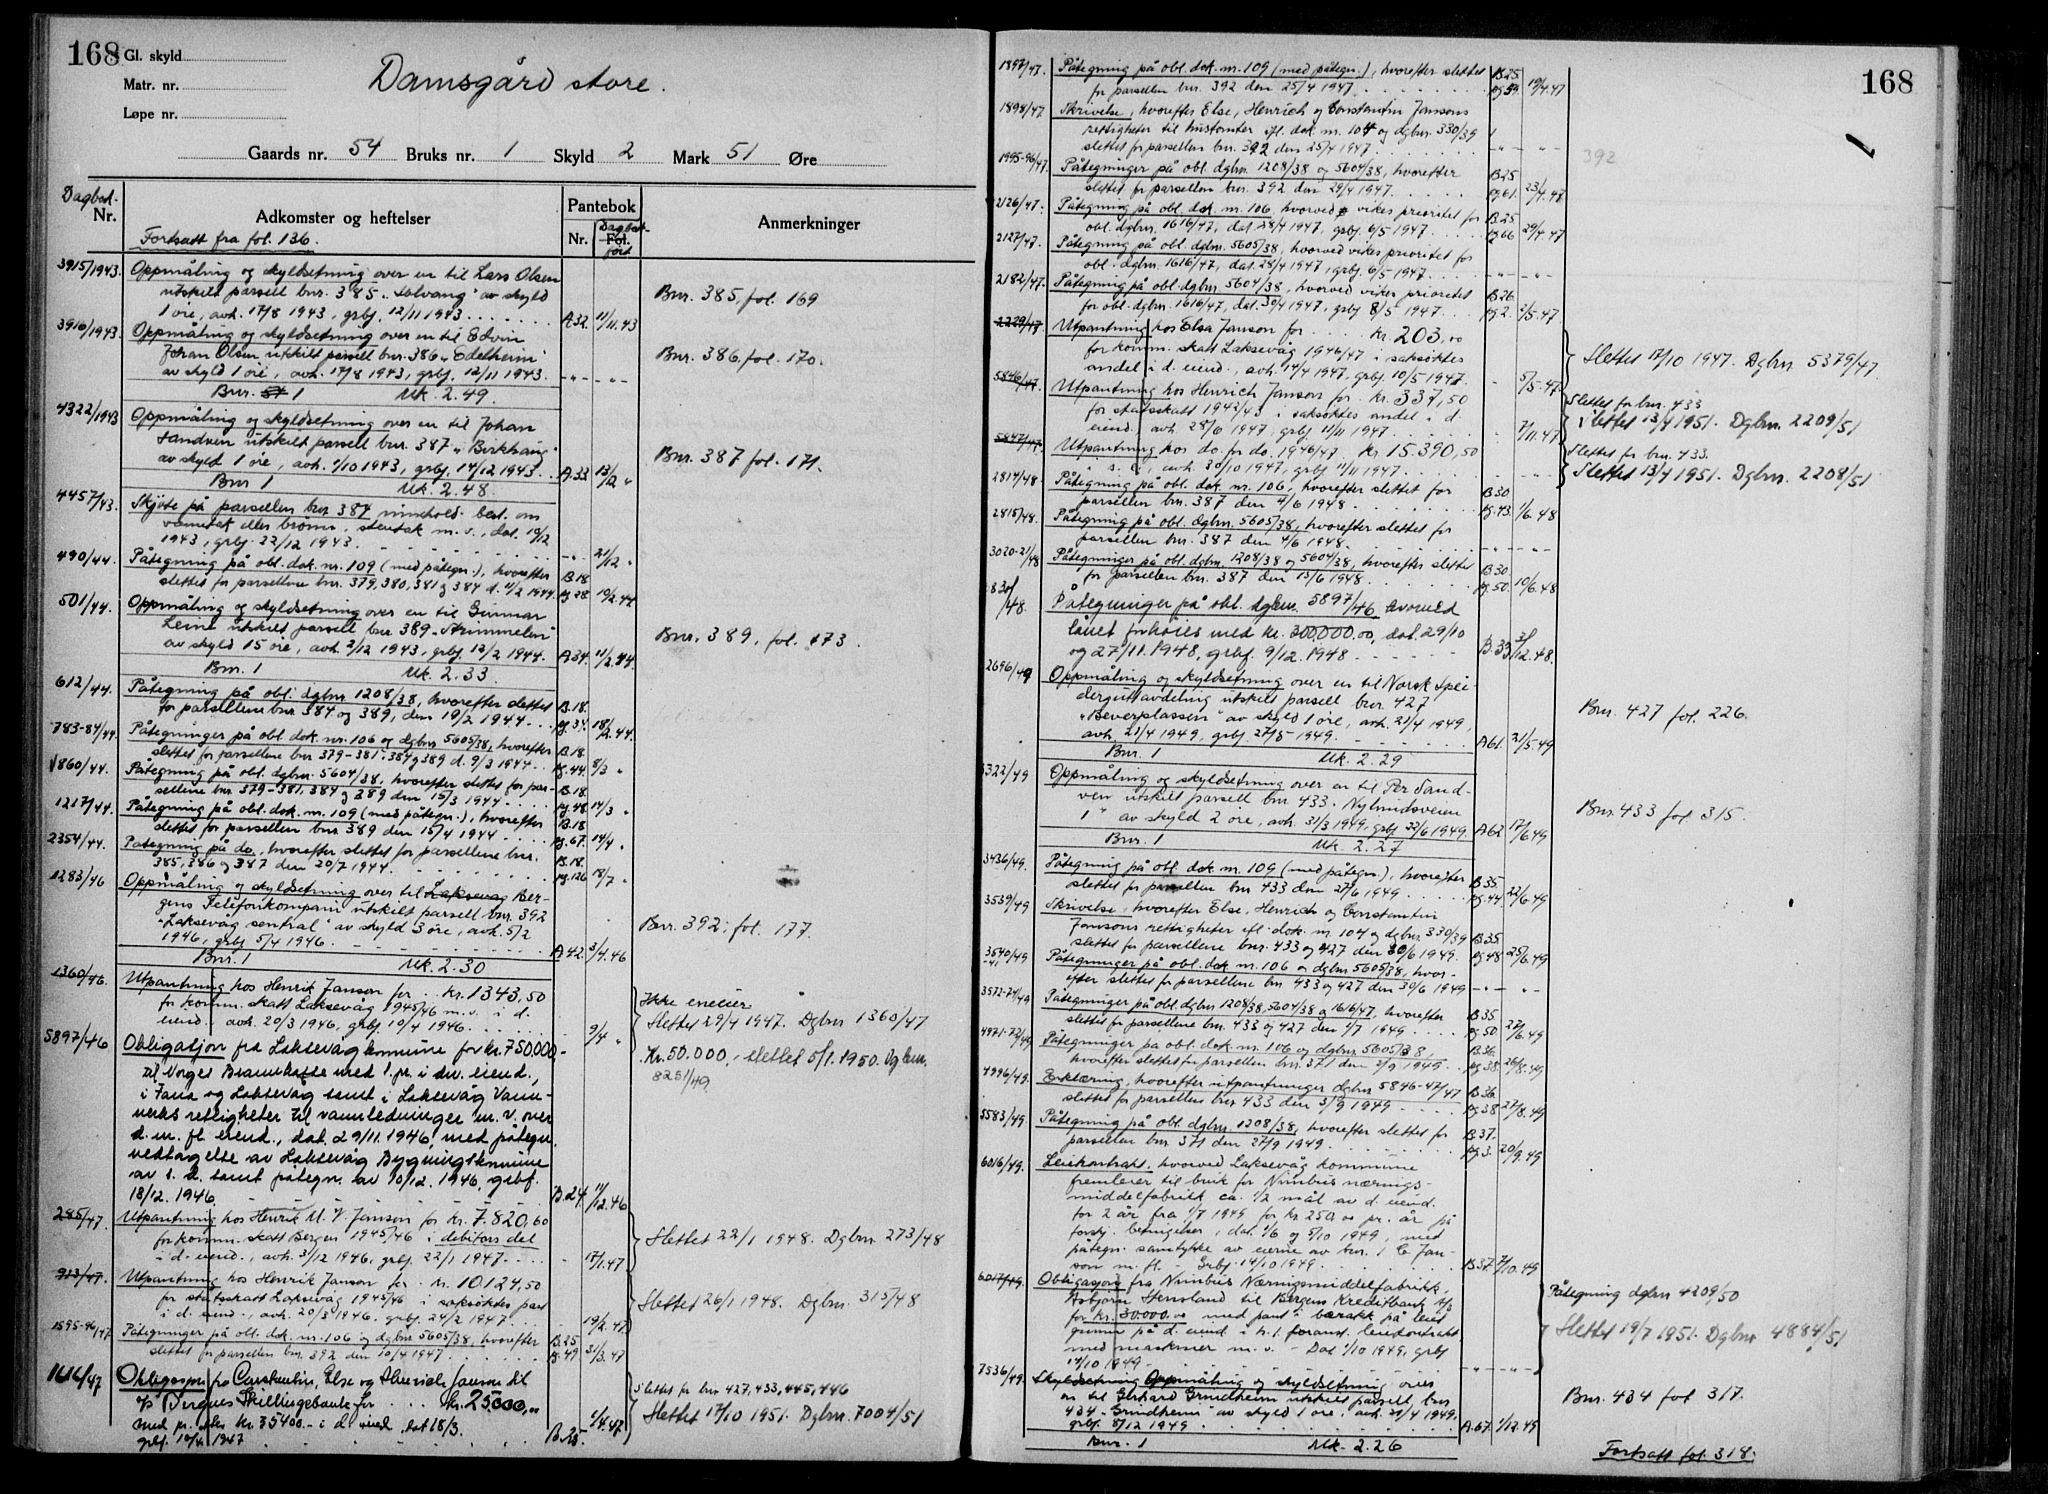 168
Gl. skyld
Matr. nr.
Løpe nr.
Damsgård store.
Gaards nr. 54 Bruks nr. 1 Skyld 2 Mark 51 Øre
Dagbok- Nr.
Adkomster og heftelser
Pantebok
Nr. Fol. Dagbok ført
Anmerkninger
Fortsatt fra fol. 136.
3915/1943. Oppmåling og skyldsetning over en til Lars Olsen
utskilt parsell bnr. 385 „Solvang" av skyld
1 øre, avh. 17/8 1943, grbj. 12/11 1943. A.32. 11/11.43 Bnr. 385, fol. 169
3916/1943. Oppmåling og skyldsetning over en til Edvin
Johan Olsen utskilt parsell bnr. 386 „Edelheim"
av skyld 1 øre, avh. 17/8 1943, grbj. 12/11 1943. Bnr. 386, fol. 170.
Bnr. 1 Mk. 2.49.
4322/1943 Oppmåling og skyldsetning over en til Johan
Sandven utskilt parsell bnr 387 „Birkhaug"
av skyld 1 øre, avh. 1/10 1943, grbj. 14/12 1943. A.33. 13/12 " Bnr. 387 fol. 171.
Bnr 1 Mk. 2.48.
4457/43. Skjøte på parsellen bnr 387 innehold. best. om
1943, grbj. 22/12 1943. 21/12 "
490/44. Påtegning på obl. dok. nr. 109 (med påtegn.), hvorefter B.18
slettet for parsellene bnr. 379, 380, 381 og 384 d. 11/2 1944. pg. 28 10/2.44
501/44. Oppmåling og skyldsetning over en til Gunnar
Leine utskilt parsell bnr 389
av skyld 15 øre, avh. 2/12 1943, grbj. 12/2 1944. A34. 11/2.44. Bnr. 389, fol. 173.
Bnr. 1 Mk. 2.33.
612/44. Påtegning på obl. dgbnr. 1208/38, hvorefter slettet B.18.
for parsellene bnr 384 og 389, den 19/2 1944. pg. 34. 18/2.44.
783-84/44. Påtegninger på obl. dok. nr. 106 og dgbnr 5605/38, hvorefter B.18.
slettet for parsellene bnr 379-381, 384 og 389 d. 9/3 1944. pg. 44. 8/3 "
860/44. Påtegning på obl. dgbnr. 5604/38, hvorefter slettet for par- B.18.
sellene bnr. 379-381, 384 og 389 den 15/3 1944. pg. 48 14/3 "
1217/44. Påtegning på obl. dok. nr. 109 (med påtegn.), hvorefter B.18
slettet for parsellen bnr 389 den 15/4 1944. pg. 67. 14/4 "
2354/44. Påtegning på do., hvorefter slettet for parsellene bnr. B.18.
385, 386 og 387 den 20/7 1944. pg. 126 18/7 "
1283/46 Oppmåling og skyldsetning over til Laksevåg Ber-
gens Telefonkompani utskilt parsell bnr. 392
„Laksevåg sentral" av skyld 3 øre, avh. 5/2
1946, grbj 5/4 1946. A.42. 3/4.46 Bnr. 392, fol. 177.
Bnr. 1 Mk. 2.30
1360/46. Utpantning hos Henrik Janson for kr. 1343,50
for komm. skatt Laksevåg 1945/46 m.v. i d.
eiend. avh. 20/3 1946, grbj 10/4 1946. 9/4 " Ikke eneeier
Slettet 29/4 1947. Dgbnr 1360/47
5897/46 Obligasjon fra Laksevåg kommune for kr. 750.000,-
til Norges Brannkasse med 1. pr. i div. eiend.,
i Fana og Laksevåg samt i Laksevåg Vann-
verks rettigheter til vannledninger m. v. over
d. m. fl. eiend., dat. 29/11.1946, med påtegn.
vedtagelse av Laksevåg Bygningskommune
av s. d. samt påtegn. av 10/12.1946, grbf.
18/12.1946 B.24. 11/12.46
Kr. 50.000,- slettet 5/1.1950. Dgbnr.
8251/49.
285/47. Utpantning hos Henrik M. V. Janson for kr. 7.820,60
for komm. skatt Bergen 1945/46 i debitors del
i d. eiend., avh. 3/12 1946, grbj. 22/1 1947. 17/1.47 Slettet 22/1 1948. Dgbnr 273/48
913/47. Utpantning hos Henrik Janson for kr. 10.124,50
for statsskatt Laksevåg 1945/46 i saksøktes part
i d. eiend., avh. 20/3 1946, grbj. 24/2 1947. 19/2.47 Slettet 26/1 1948. Dgbnr. 315/48
1595-96/47. Påtegninger på obl. dok. nr. 106 og dgbnr 5605/38, hvorefter B.25
slettet for parsellen bnr. 392 den 10/4 1947. pg. 49 31/3.47
1616/47 Obligasjon fra Constantin, Else og Henrich Janson til
A/S Bergens Skillingsbank for kr. 25000,00
med pr. efter kr. 35400.- i d. eiend. dat 18/3.
grbf. 10/4. 1947 B.25. 1/4.47
Slettet for bnr 427, 433, 445, 446
Slettet 17/10 1951. Dgbnr. 7004/51
168
392
1897/47. Påtegning på obl. dok. nr. 109 (med påtegn.), hvorefter slettet B.25.
for parsellen bnr. 392 den 25/4 1947. pg. 59. 19/4.47
1898/47. Skrivelse, hvorefter Else, Henrich og Constantin Jansons
rettigheter til hustomter ifl. dok. nr. 104 og dgbnr. 330/39
slettet for parsellen bnr. 392 den 25/4 1947.
1995-96/47. Påtegninger på obl. dgbnr. 1208/38 og 5604/38, hvorefter B.25
slettet for parsellen bnr. 392 den 29/4 1947. pg. 61. 23/4.47
2126/47. Påtegning på obl. dok. nr. 106, hvorved vikes prioritet for B.25
obl. dgbnr. 1616/47, dat. 28/4 1947, grbj. 6/5 1947. pg. 66 29/4.47
2127/47. Påtegning på obl. dgbnr. 5605/38, hvorved vikes prioritet for
obl. dgbnr. 1616/47, dat. 28/4 1947, grbj. 6/5 1947.
2182/47. Påtegning på obl. dgbnr. 5604/38, hvorved vikes prioritet B.26.
for obl. dgbnr. 1616/47, dat. 30/4 1947, grbj 8/5 1947. pg. 2. 2/5.47
2229/47. Utpantning hos Elsa Janson for kr. 203,00
for komm. skatt Laksevåg 1946/47 i saksøktes
andel i d. eiend., avh. 14/4 1947, grbj. 10/5 1947. 5/5.47. Slettet 17/10 1947. Dgbnr. 5379/47
5846/47. Utpantning hos Henrich Janson for kr. 337,50
for statsskatt 1942/43 i saksøktes andel i d.
eiend. avh. 28/6 1947, grbj 11/11 1947. 7/11.47 Slettet for bnr. 433
Slettet 13/4 1951. Dgbnr. 2209/51
5847/47. Utpantning hos do. for do. 1946/47 kr. 15.390,50
i s. e., avh. 30/10 1947, grbj 11/11 1947. Slettet for bnr. 433.
Slettet 13/4 1951. Dgbnr. 2208/51
2814/48 Påtegning på obl. dok. nr. 106, hvorefter slettet for B.30
parsellen bnr. 387 den 4/6 1948. pg. 43. 1/6.48
2815/48. Påtegning på obl. dgbnr. 5605/38, hvorefter slettet for
parsellen bnr. 387 den 4/6 1948.
3020-21/48 Påtegninger på obl. dgbnr. 1208/38 og 5604/38, hvorefter slettet B.30
for parsellen bnr. 387 den 15/6 1948. pg. 50. 10/6.48
Påtegninger på obl. dgbnr. 5897/46 hvorved
lånet forhøies med kr. 300.000.00, dat. 29/10
og 27/11.1948, grbf. 9/12.1948. B.33.
2696/49 Oppmåling og skyldsetning over en til Norsk Spei-
dergutt avdeling utskilt parsell bnr. 427
„Beverplassen" av skyld 1 øre, avh. 21/4 1949,
avh. 21/4 1949, grbj 27/5 1949. A61. 21/5.49 Bnr. 427 fol. 226.
Bnr. 1 Mk. 2.29
3322/49 Oppmåling og skyldsetning over en til Per Sand-
ven utskilt parsell bnr 433. Nylundsveien
1" av skyld 2 øre, avh. 31/3 1949, grbj 22/6 1949. A62 17/6.49 Bnr. 433 fol 315.
Bnr. 1 Mk. 2.27
3436/49. Påtegning på obl. dok. nr. 109 (med påtegn.), hvorefter B.35.
slettet for parsellen bnr 433 den 27/6 1949. pg. 44. 22/6.49
3539/49 Skrivelse, hvorefter Else, Henrich og Constantin
Jansons rettigheter ifl. dok. nr. 104 og dgbnr. 330/39 B.35.
slettet for parsellene bnr. 433 og 427 den 30/6 1949. pg. 48 25/6.49
3540/49 -41 Påtegninger på obl. dok. nr. 106 og dgbnr 5605/38, hvor-
efter slettet for parsellene bnr 433 og 427 den 30/6 1949
3572-74/49 Påtegninger på obl. dgbnr 1208/38, 5604/38 og 1616/47, hvorefter B.35
slettet for parsellene bnr. 433 og 427 den 1/7 1949. pg. 50 27/6.49
4971-72/49 Påtegninger på obl. dok. nr. 106 og dgbnr 5605/38, B.36.
hvorefter slettet for parsellen bnr. 371 den 2/9 1949. pg. 38. 26/8.49
4996/49. Erklæring, hvorefter utpantninger dgbnr 5846-47/47 B.36.
slettet for parsellen bnr 433 den 3/9 1949. pg. 38 27/8.49
5583/49 Påtegning på obl. dgbnr. 1208/38, hvorefter slettet for B.37.
parsellen bnr 371 den 27/9 1949. pg. 3. 20/9.49
6016/49. Leiekontrakt, hvorved Laksevåg kommune
fremleier til bruk for Nimbus nærings-
middelfabrikk ca. 1/2 mål av d. eiend.
for 2 år fra 1/7 1949 for kr 250,00 pr. år på
forskj. betingelser, dat. 1/6 og 5/10 1949, med
påtegn. samtykke av eierne av bnr. 1 C Jan-
son m. fl. Grbj 14/10 1949. B37. 7/10.49
6017/49. Obligasjon fra Nimbus Næringsmiddelfabrikk,
Asbjørn til Bergens Kreditbank A/S
for kr. 30.000.00 med pant i barakk på leiet
grunn på d. eiend i h. t. foranst. leiekontrakt
med maskiner m. v. - Dat 1/10 1949, grbj
14/10 1949.
Påtegning dgbnr 4209/50
Slettet 19/7 1951. Dgbnr 4884/51
7536/49. Skyldsetning Oppmåling og skyldsetning over
en til Gerhard Grindheim utskilt parsell, bnr
434 „Grindheim" av skyld 1 øre, avh. 21/4 1949.
grbj. 8/12 1949. A.67. 1/12.49 Bnr. 434 fol 317.
Bnr. 1 Mk. 2.26
Fortsatt fol. 318.